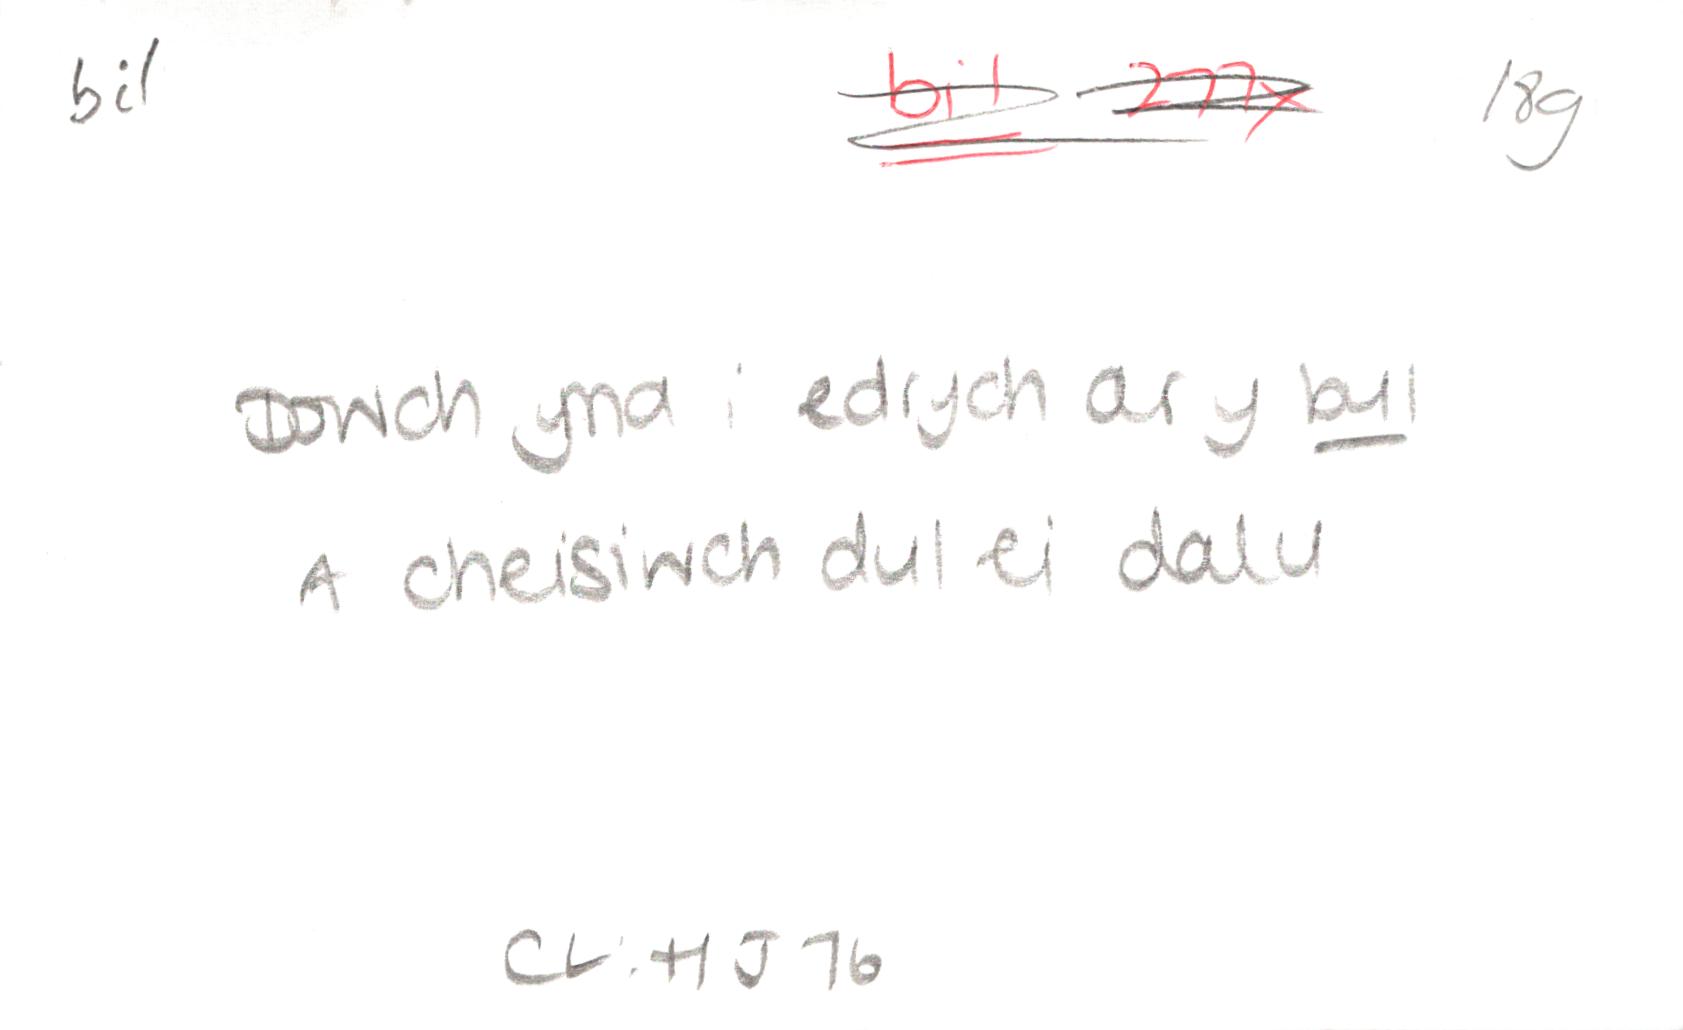 bil bil 277x 18g
Dowch yna i edrych ar y byl
A cheisiwch dul ei dalu
CLl. H J 76